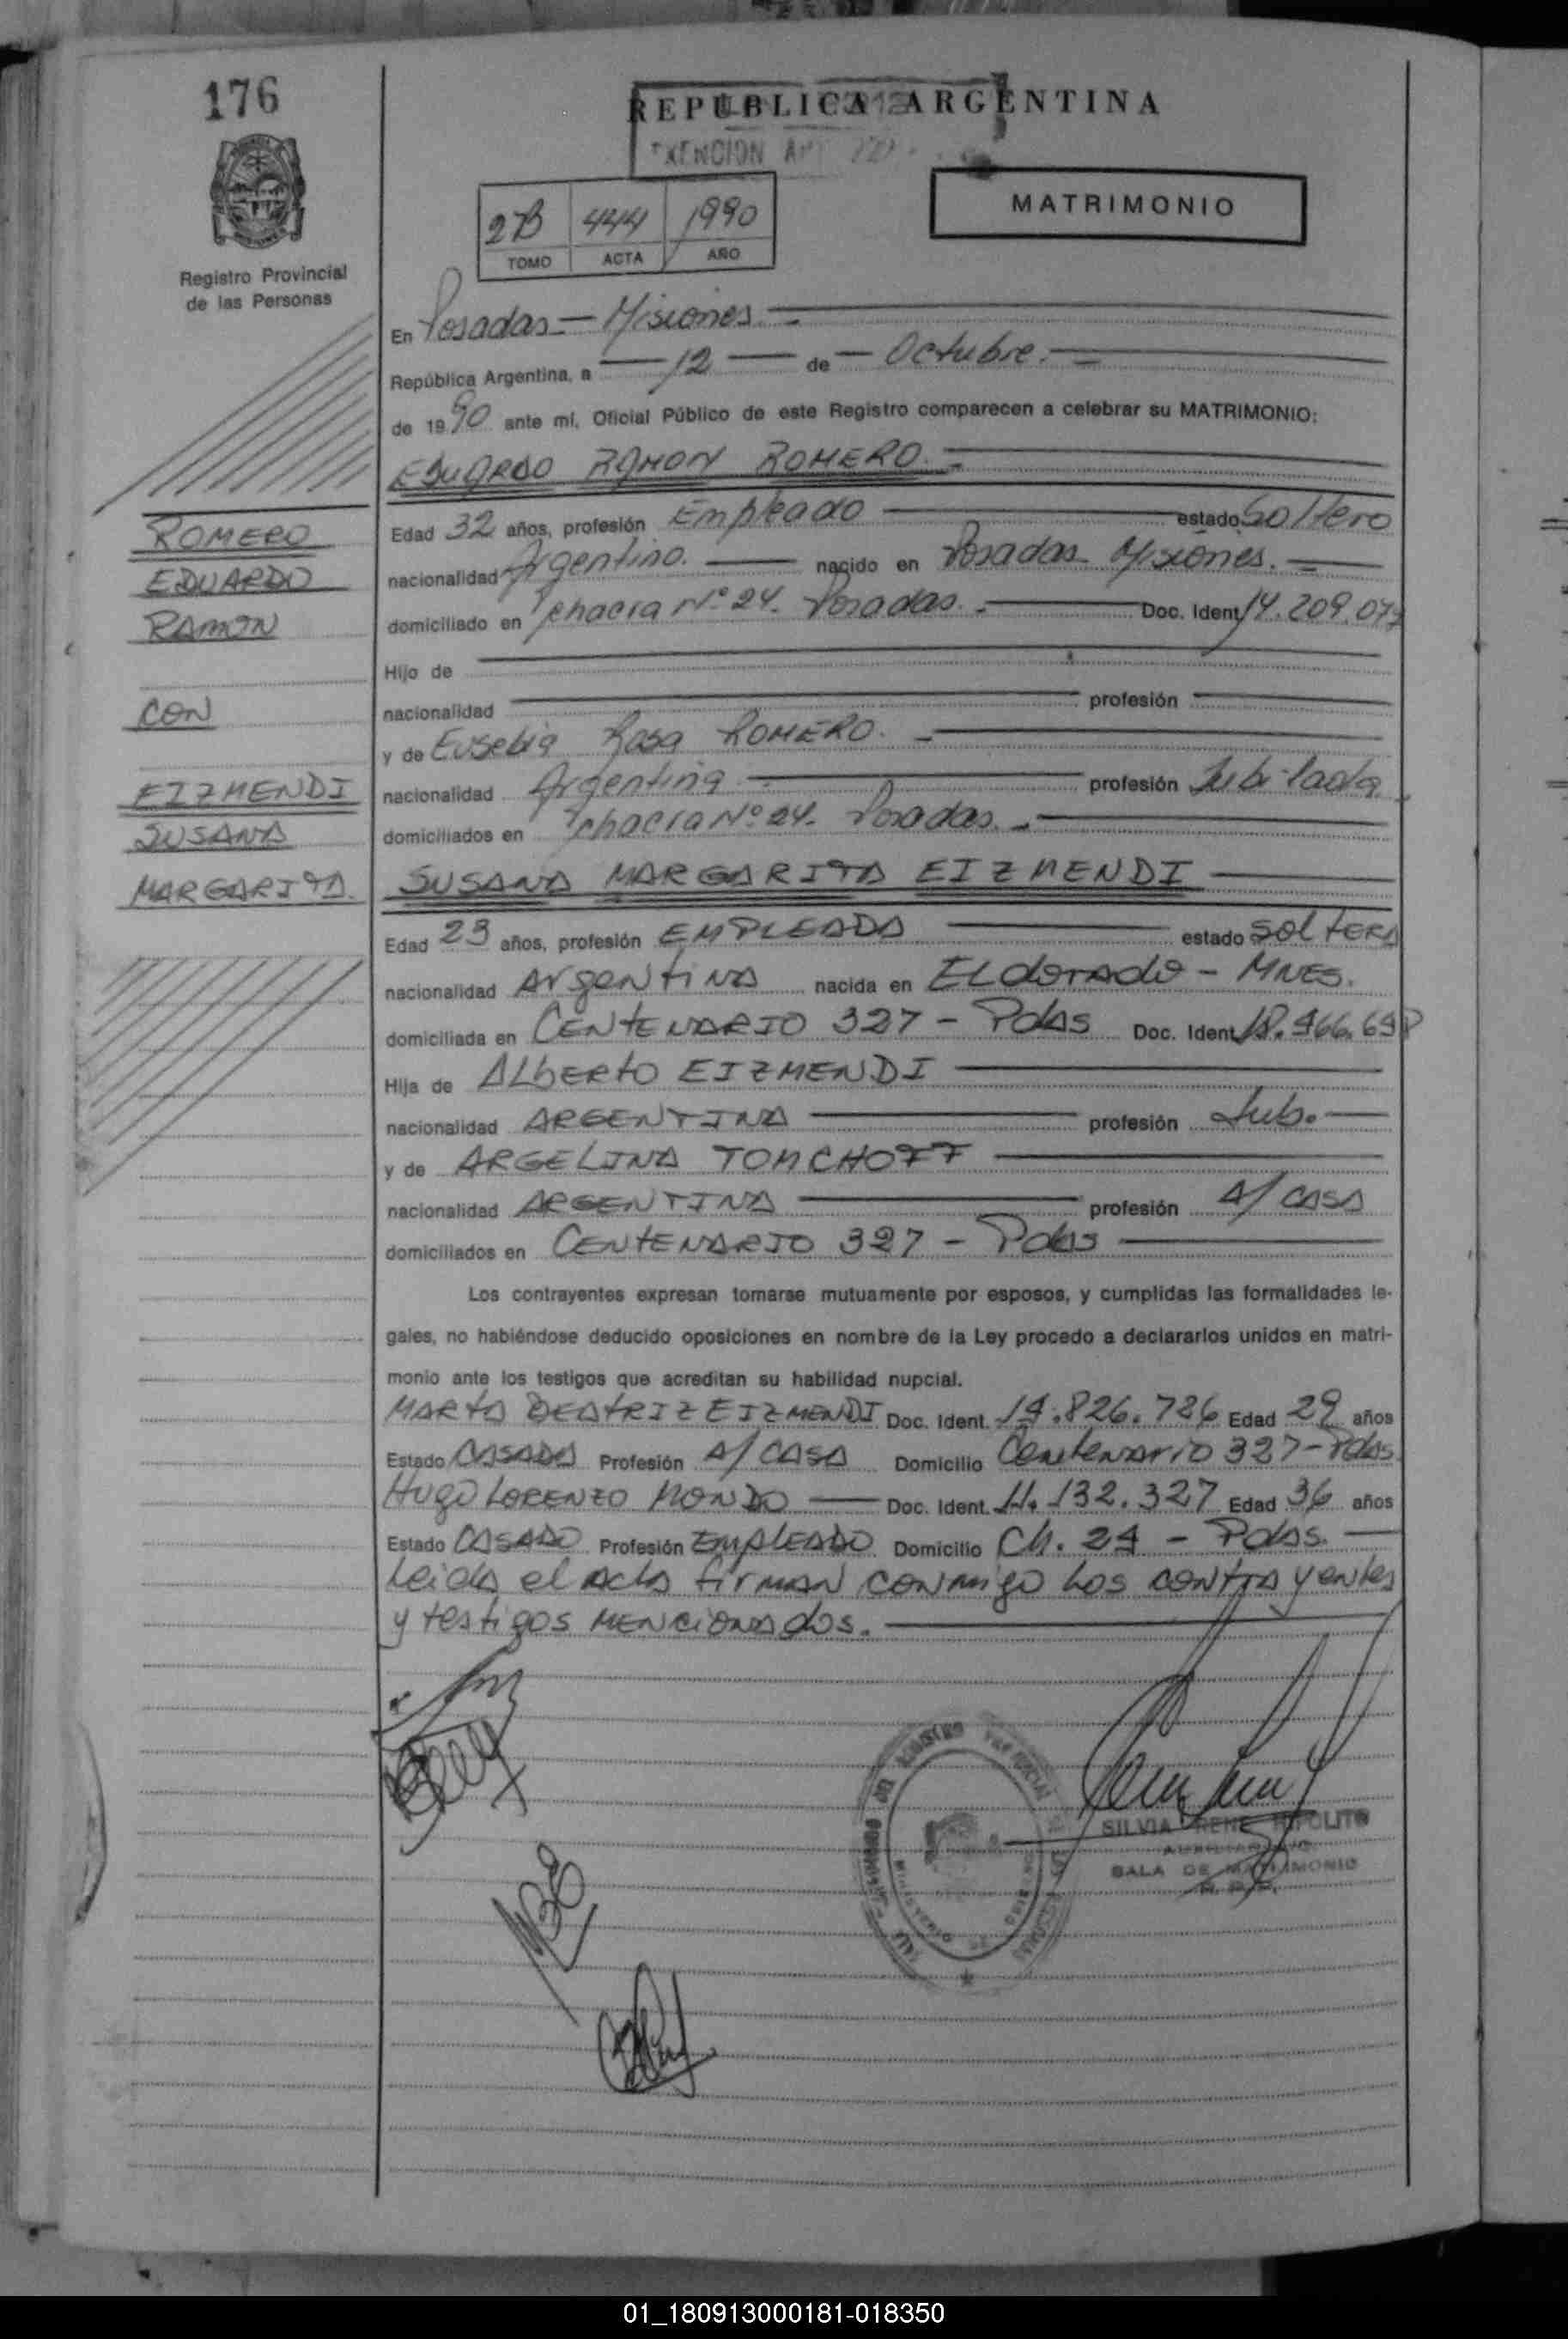 176
REPUBLICA ARGENTINA
EXENCION
MATRIMONIO
2B 444 1990
TOMO ACTA AÑO
Registro Provincial
de las Personas
En Posadas - Misiones
República Argentina, a 12 de Octubre.
de 1990 ante mí, Oficial Público de este Registro comparecen a celebrar su MATRIMONIO:
EDUARDO RAMON ROMERO.
Edad 32 años, profesión Empleado estado Soltero
nacionalidad Argentino. nacido en Posadas Misiones.
domiciliado en chacra Nº 24. Posadas. Doc. Ident. 14.209.077
Hijo de
nacionalidad profesión
y de Eusebia Rosa ROMERO.
nacionalidad Argentina profesión Jubilada
domiciliados en chacra Nº 24. Posadas.
ROMERO
EDUARDO
RAMON
CON
EIZMENDI
SUSANA
MARGARITA.
SUSANA MARGARITA EIZMENDI
Edad 23 años, profesión EMPLEADA estado SOLTERA
nacionalidad ArgentinA nacida en ELdorAdo - MNES.
domiciliada en CENTENARIO 327 - PdAS Doc. Ident. 18.466.698
Hija de ALbERTO EIZMENDI
nacionalidad ARGENTINA profesión Jub.
y de ARGELINA TOMCHOFF
nacionalidad ARGENTINA profesión A/ CASA
domiciliados en CENTENARIO 327 - Pdas
Los contrayentes expresan tomarse mutuamente por esposos, y cumplidas las formalidades le-
gales, no habiéndose deducido oposiciones en nombre de la Ley procedo a declararlos unidos en matri-
monio ante los testigos que acreditan su habilidad nupcial.
MARTA BEATRIZ EIZMENDI Doc. Ident. 14.826.726 Edad 29 años
Estado CASADA Profesión A/ CASA Domicilio Centenario 327-Pdas.
Hugo LORENZO MONDO Doc. Ident. 11.132.327 Edad 36 años
Estado CASADO Profesión EMPLEADO Domicilio Ch. 24 - PdAS.
Leida el Acta firMAN conmigo Los contrayentes
y testigos MENcionados.
SILVIA IRENE HIPOLITO
AUXILIAR
SALA DE MATRIMONIO
R. P. P.
01_180913000181-018350